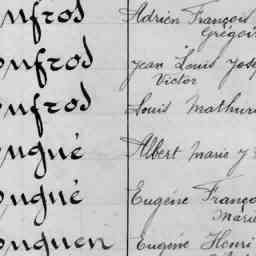 onfrod Adrien François
Grégoire
onfrod Jean Louis Jose
Victor
onfrod Louis Mathuri
ougué Albert Marie J
ougué Eugène Franço
Marie
ouguen Eugène Henri